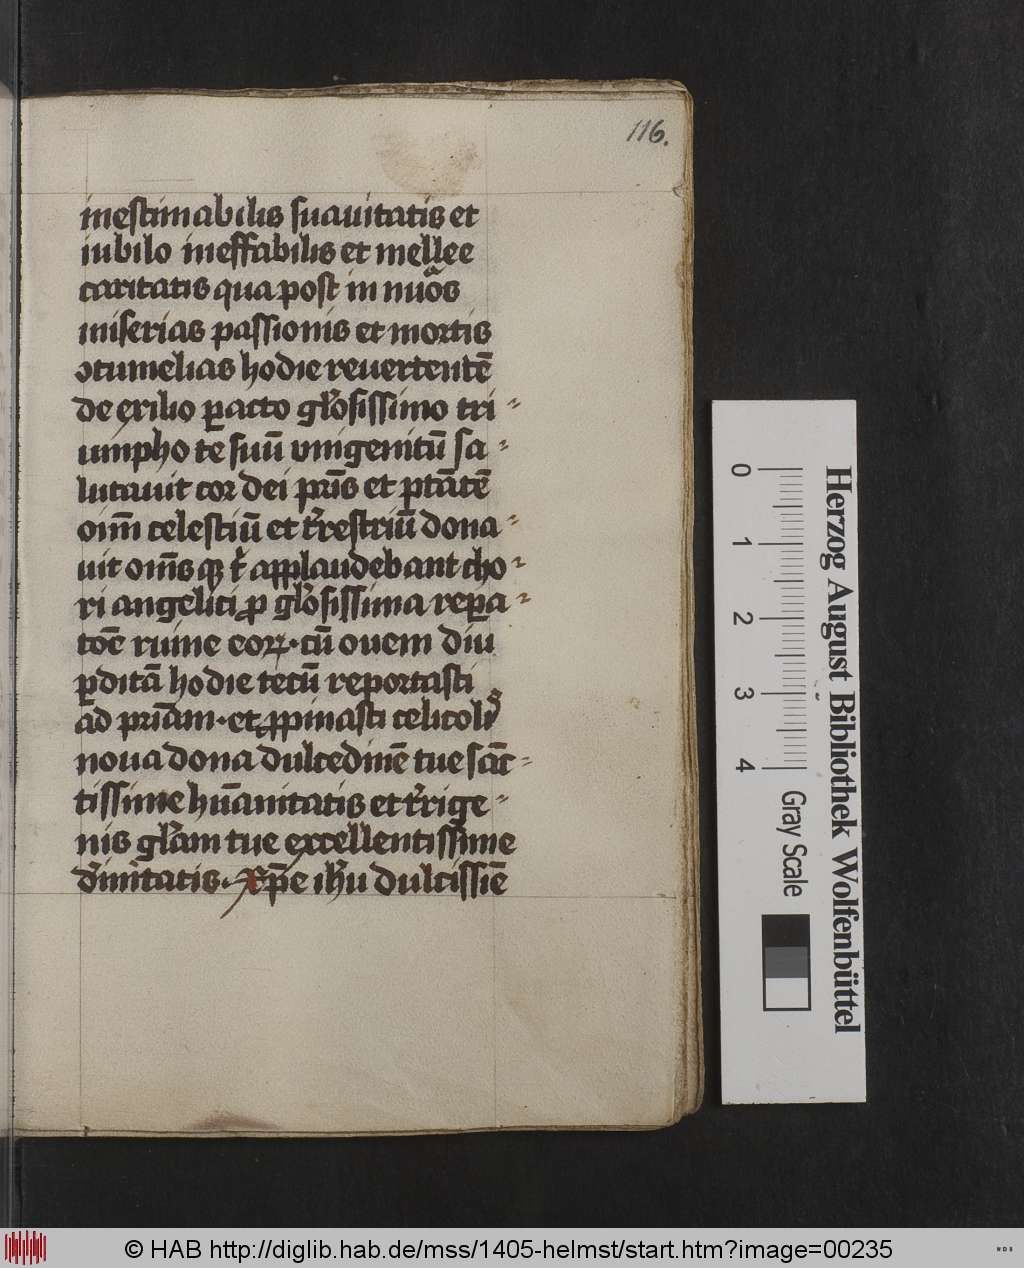 116.
inestimabilis suauitatis et
iubilo ineffabilis et mellee
caritatis qua post in nuo᷒s
miserias passionis et mortis
ↄtumelias hodie reuertentē
de exilio ꝑacto gl̓osissimo tri-
umpho te suū vnigenitū sa-
lutauit cor dei pr̄is et ptāte̅
oim̄ celestiū et tr̓restriū dona-
uit om̄s qꝫ t̓ applaudebant cho-
ri angelici ꝓ gl̓osissima reꝑa-
toē ruine eoꝝ· cū ouem diu
ꝑditā hodie tecū reportasti
ad pr̄iam· et ꝓpinasti celicolis
noua dona dulcedinē tue sāc-
tissime hūanitatis et tr̓rige-
nis gl̓am tue excellentissime
diuītatis· xp̄e ih̄u dulcissiē
Herzog August Bibliothek Wolfenbüttel
0 1 2 3 4
Gray Scale
© HAB http://diglib.hab.de/mss/1405-helmst/start.htm?image=00235